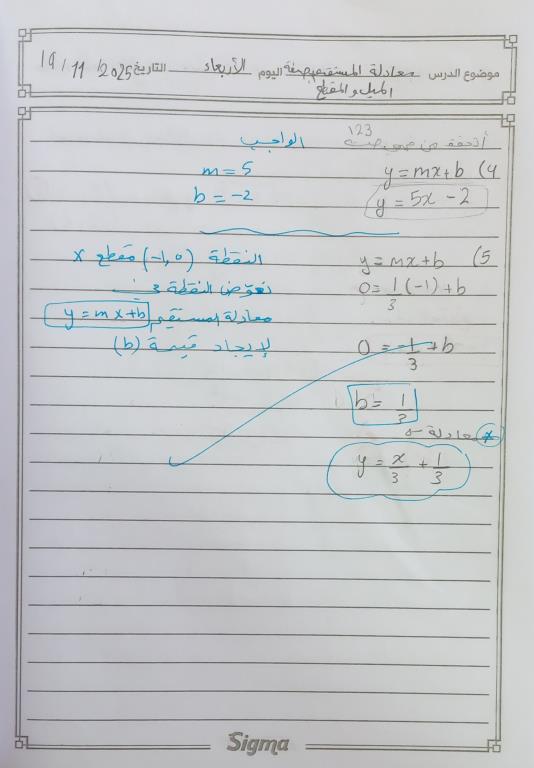 موضوع الدرس معادلة المستقيم بصيغة اليوم الأربعاء التاريخ 19/11/2025
الميل والمقطع
أتحقق من فهمي صفحة 123 الواجب
4) y = mx + b m = 5
y = 5x - 2 b = -2
5) y = mx + b النقطة (-1,0) مقطع x
0 = 1/3 (-1) + b نعوّض النقطة في
معادلة المستقيم y = mx + b
0 = -1/3 + b لإيجاد قيمة (b)
b = 1/3
معادلة
y = x/3 + 1/3
Sigma